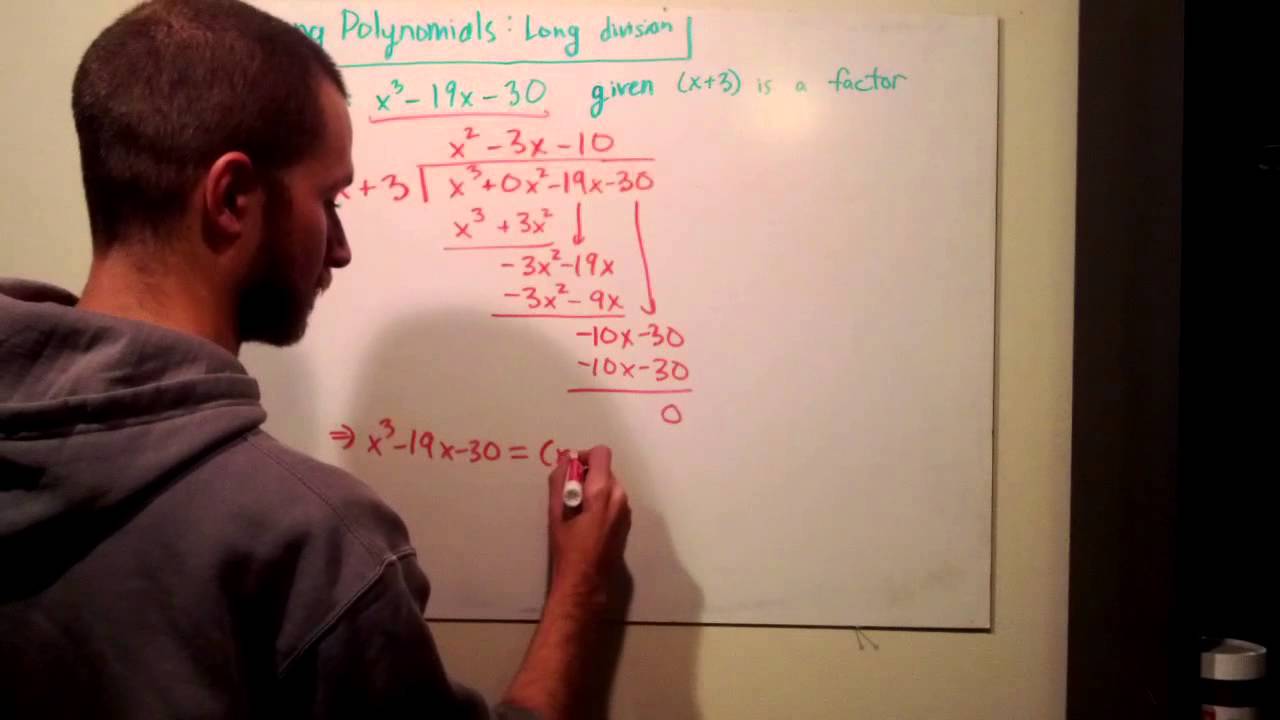 Polynomials: Long division
x³ - 19x - 30 given (x+3) is a factor
x² - 3x - 10
+ 3 x³ + 0x² - 19x - 30
x³ + 3x²
-3x² - 19x
-3x² - 9x
-10x - 30
-10x - 30
0
⇒ x³ - 19x - 30 = (x